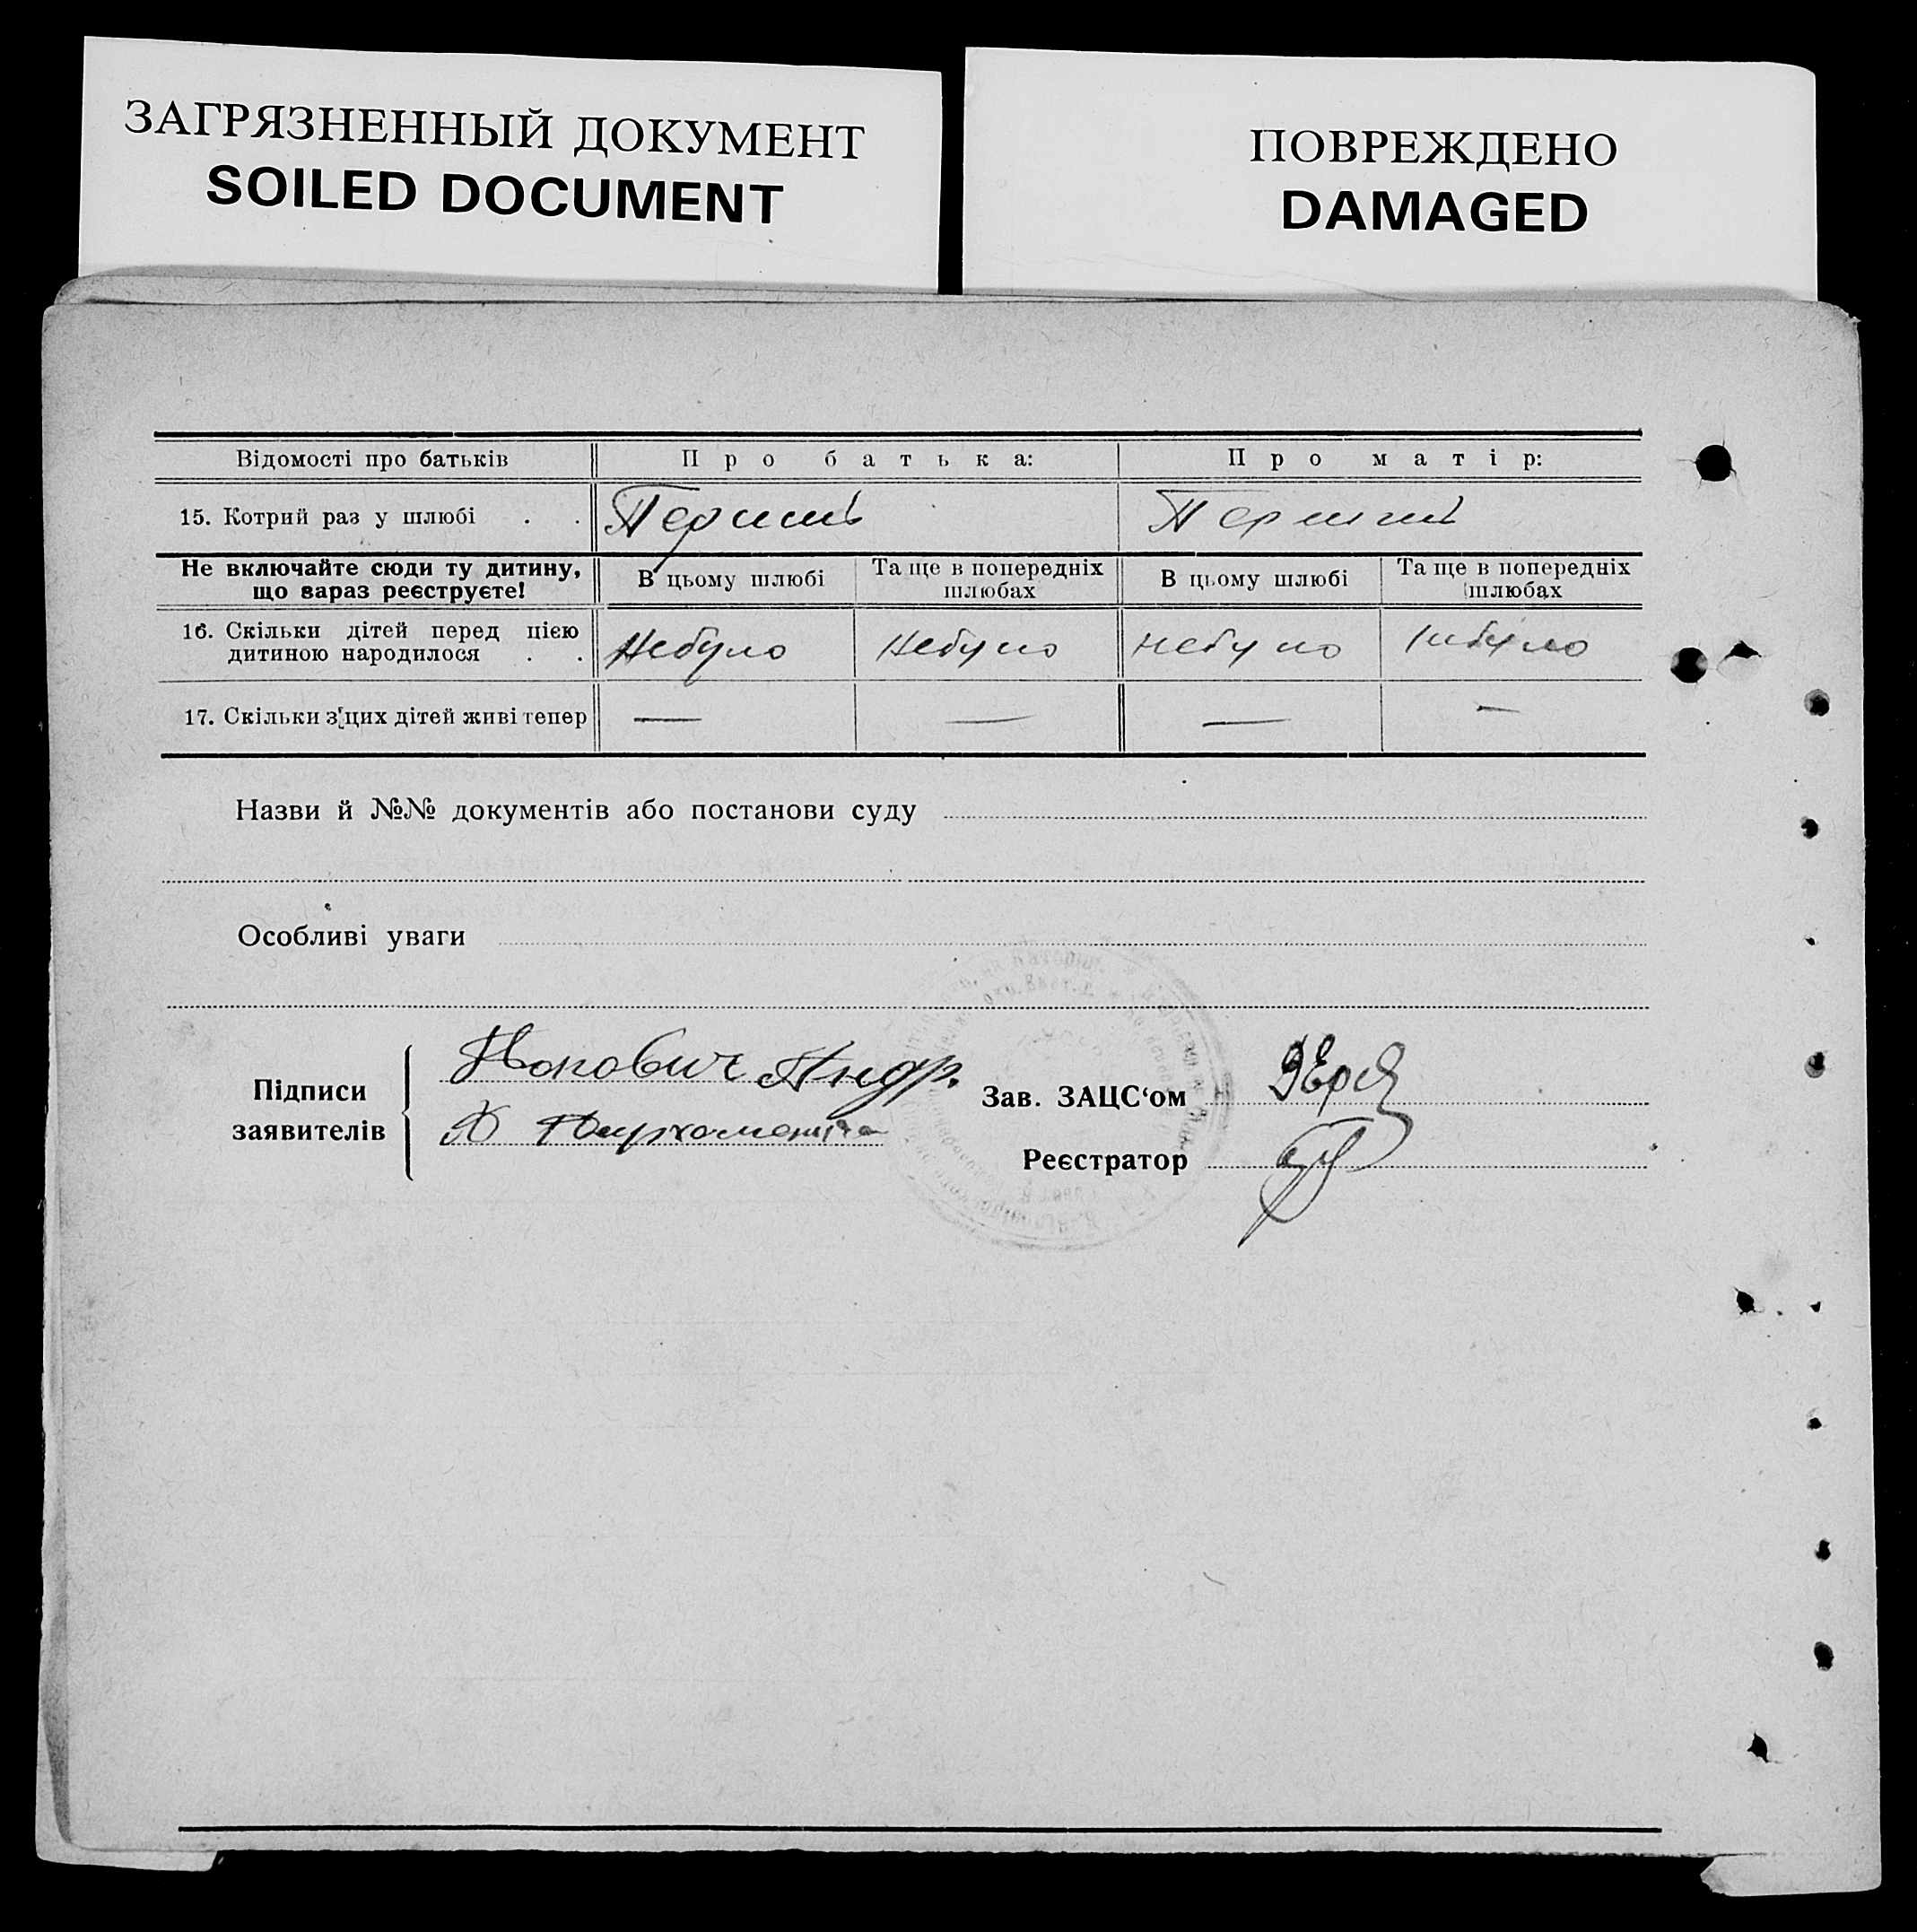 ЗАГРЯЗНЕННЫЙ ДОКУМЕНТ
SOILED DOCUMENT
ПОВРЕЖДЕНО
DAMAGED
Відомості про батьків Про батька: Про матір:
15. Котрий раз у шлюбі . . Перший Перший
Не включайте сюди ту дитину, що зараз реєструєте! В цьому шлюбі Та ще в попередніх шлюбах В цьому шлюбі Та ще в попередніх шлюбах
16. Скільки дітей перед цією дитиною народилося . . Небуло Небуло Небуло Небуло
17. Скільки з цих дітей живі тепер — — — —
Назви й №№ документів або постанови суду
Особливі уваги
Підписи заявителів
Попович Андр.
Пархоменко
Зав. ЗАЦС‘ом
Реєстратор